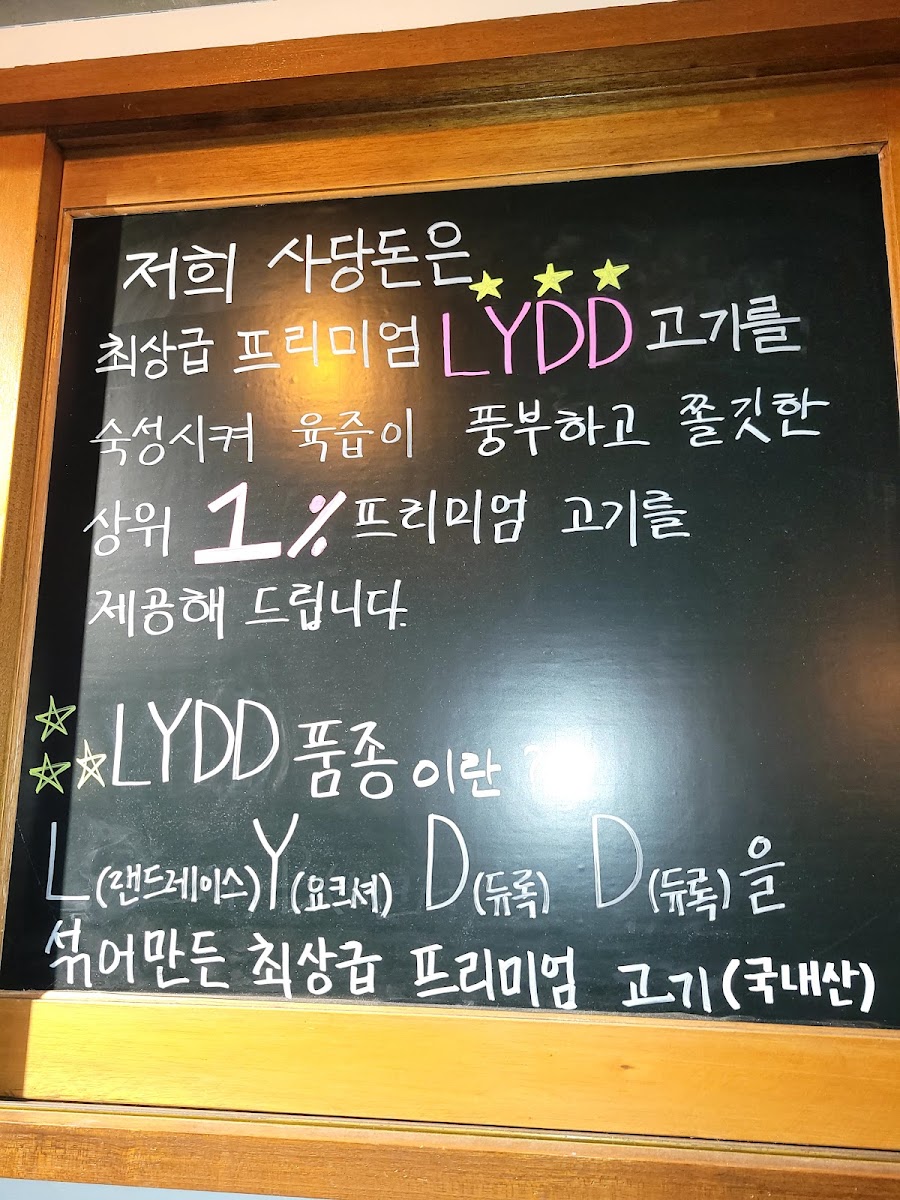 저희 사당돈은
최상급 프리미엄 LYDD 고기를
숙성시켜 육즙이 풍부하고 쫄깃한
상위 1% 프리미엄 고기를
제공해 드립니다.
LYDD 품종이란 ?
L(랜드레이스) Y(요크셔) D(듀록) D(듀록)을
섞어만든 최상급 프리미엄 고기(국내산)